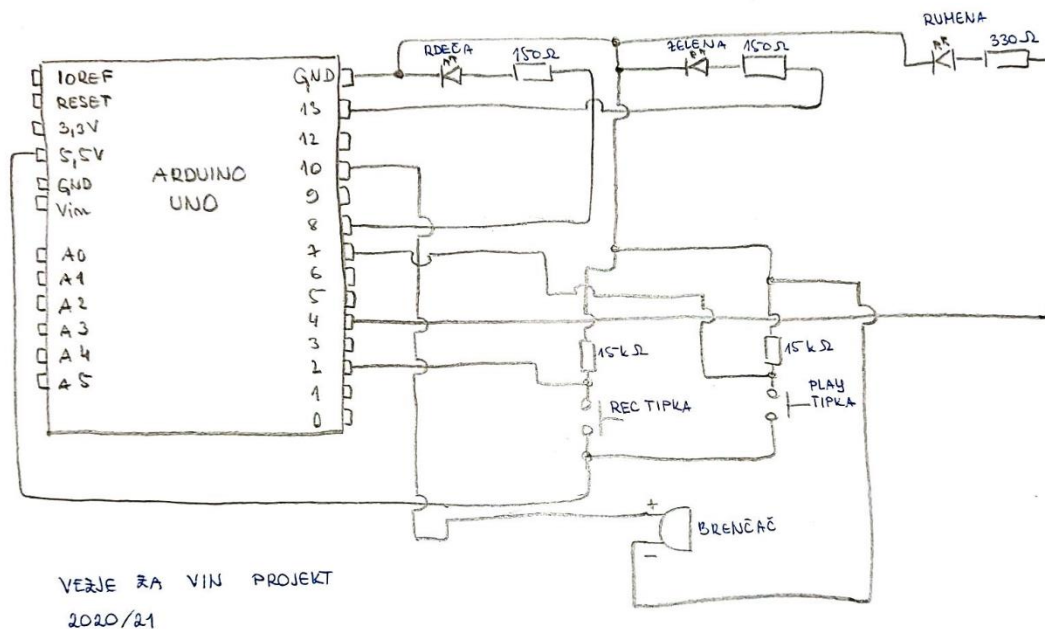 IOREF
RESET
3,3V
5,5V
GND
Vin
A0
A1
A2
A3
A4
A5
ARDUINO
UNO
GND
13
12
10
9
8
7
6
5
4
3
2
1
0
RDEČA
150Ω
ZELENA
150Ω
RUMENA
330Ω
15kΩ
15kΩ
REC TIPKA
PLAY
TIPKA
+
BRENČAČ
−
VEZJE ZA VIN PROJEKT
2020/21